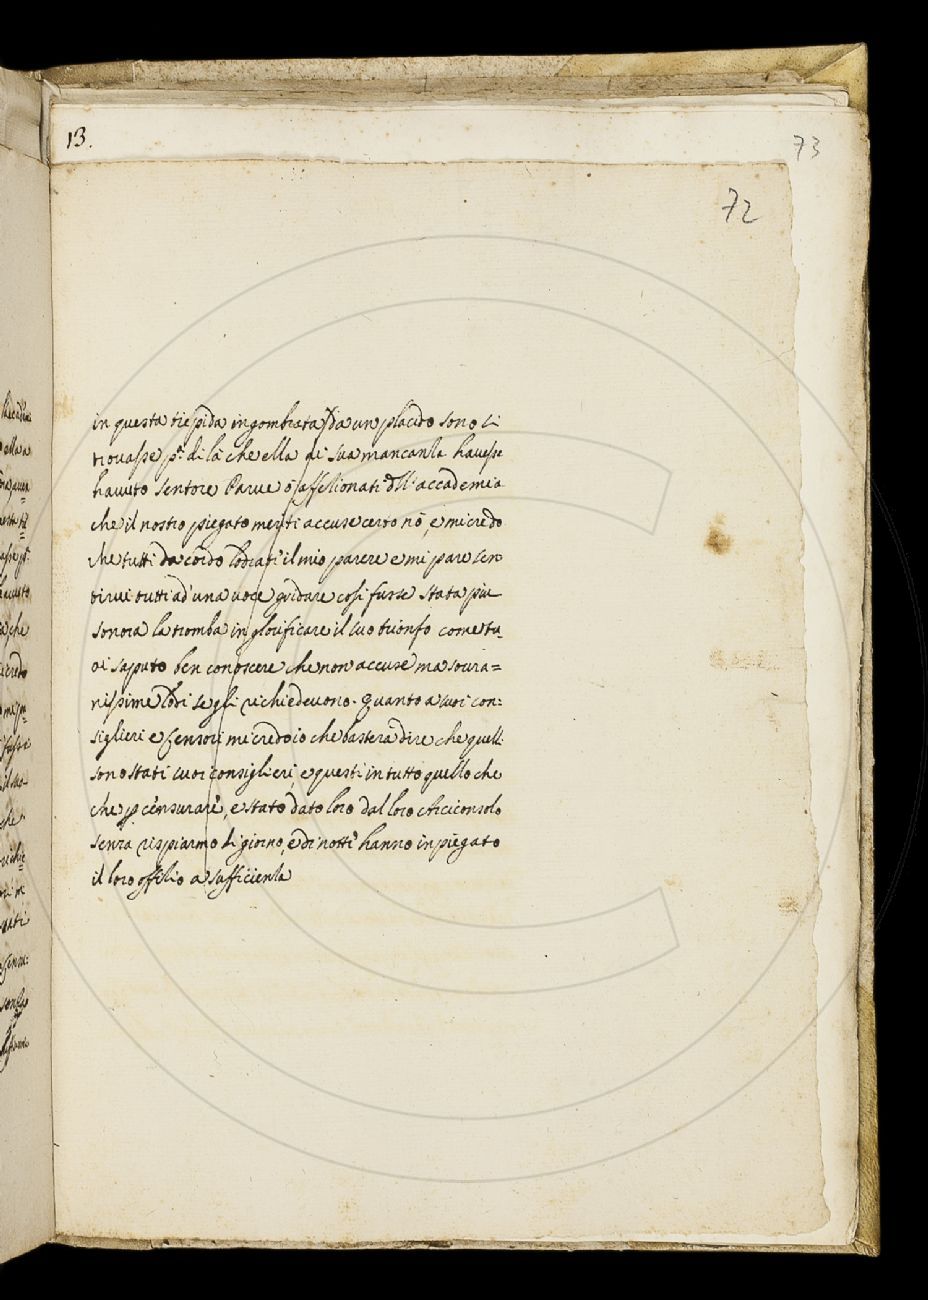 13.
73
72
in questa tiepida ingombrata da un placido sono si
trouasse p.a di là che ella di sua mancanza hauesse
hauuto sentore Parue o affezionati dll'accademia
che il nostro piegato meriti accuse certo nō, e mi credo
che tutti da cordo lodiati il mio parere e mi pare sen
tirui tutti ad una uoce gridare così fusse stata più
sonora la tromba in glorificare il suo trionfo come tu
ai saputo ben conoscere che non accuse ma soura=
nissime lodi se gli richiedeuono. Quanto a suoi con:
siglieri e Censori mi credo io che basterà dire che quelli
sono stati suoi consiglieri, e questi in tutto quello che
che p censurare, e stato dato loro dal loro Arciconsolo
senza rispiarmo di giorno, e di notte hanno inpiegato
il loro offizio a sufficienza